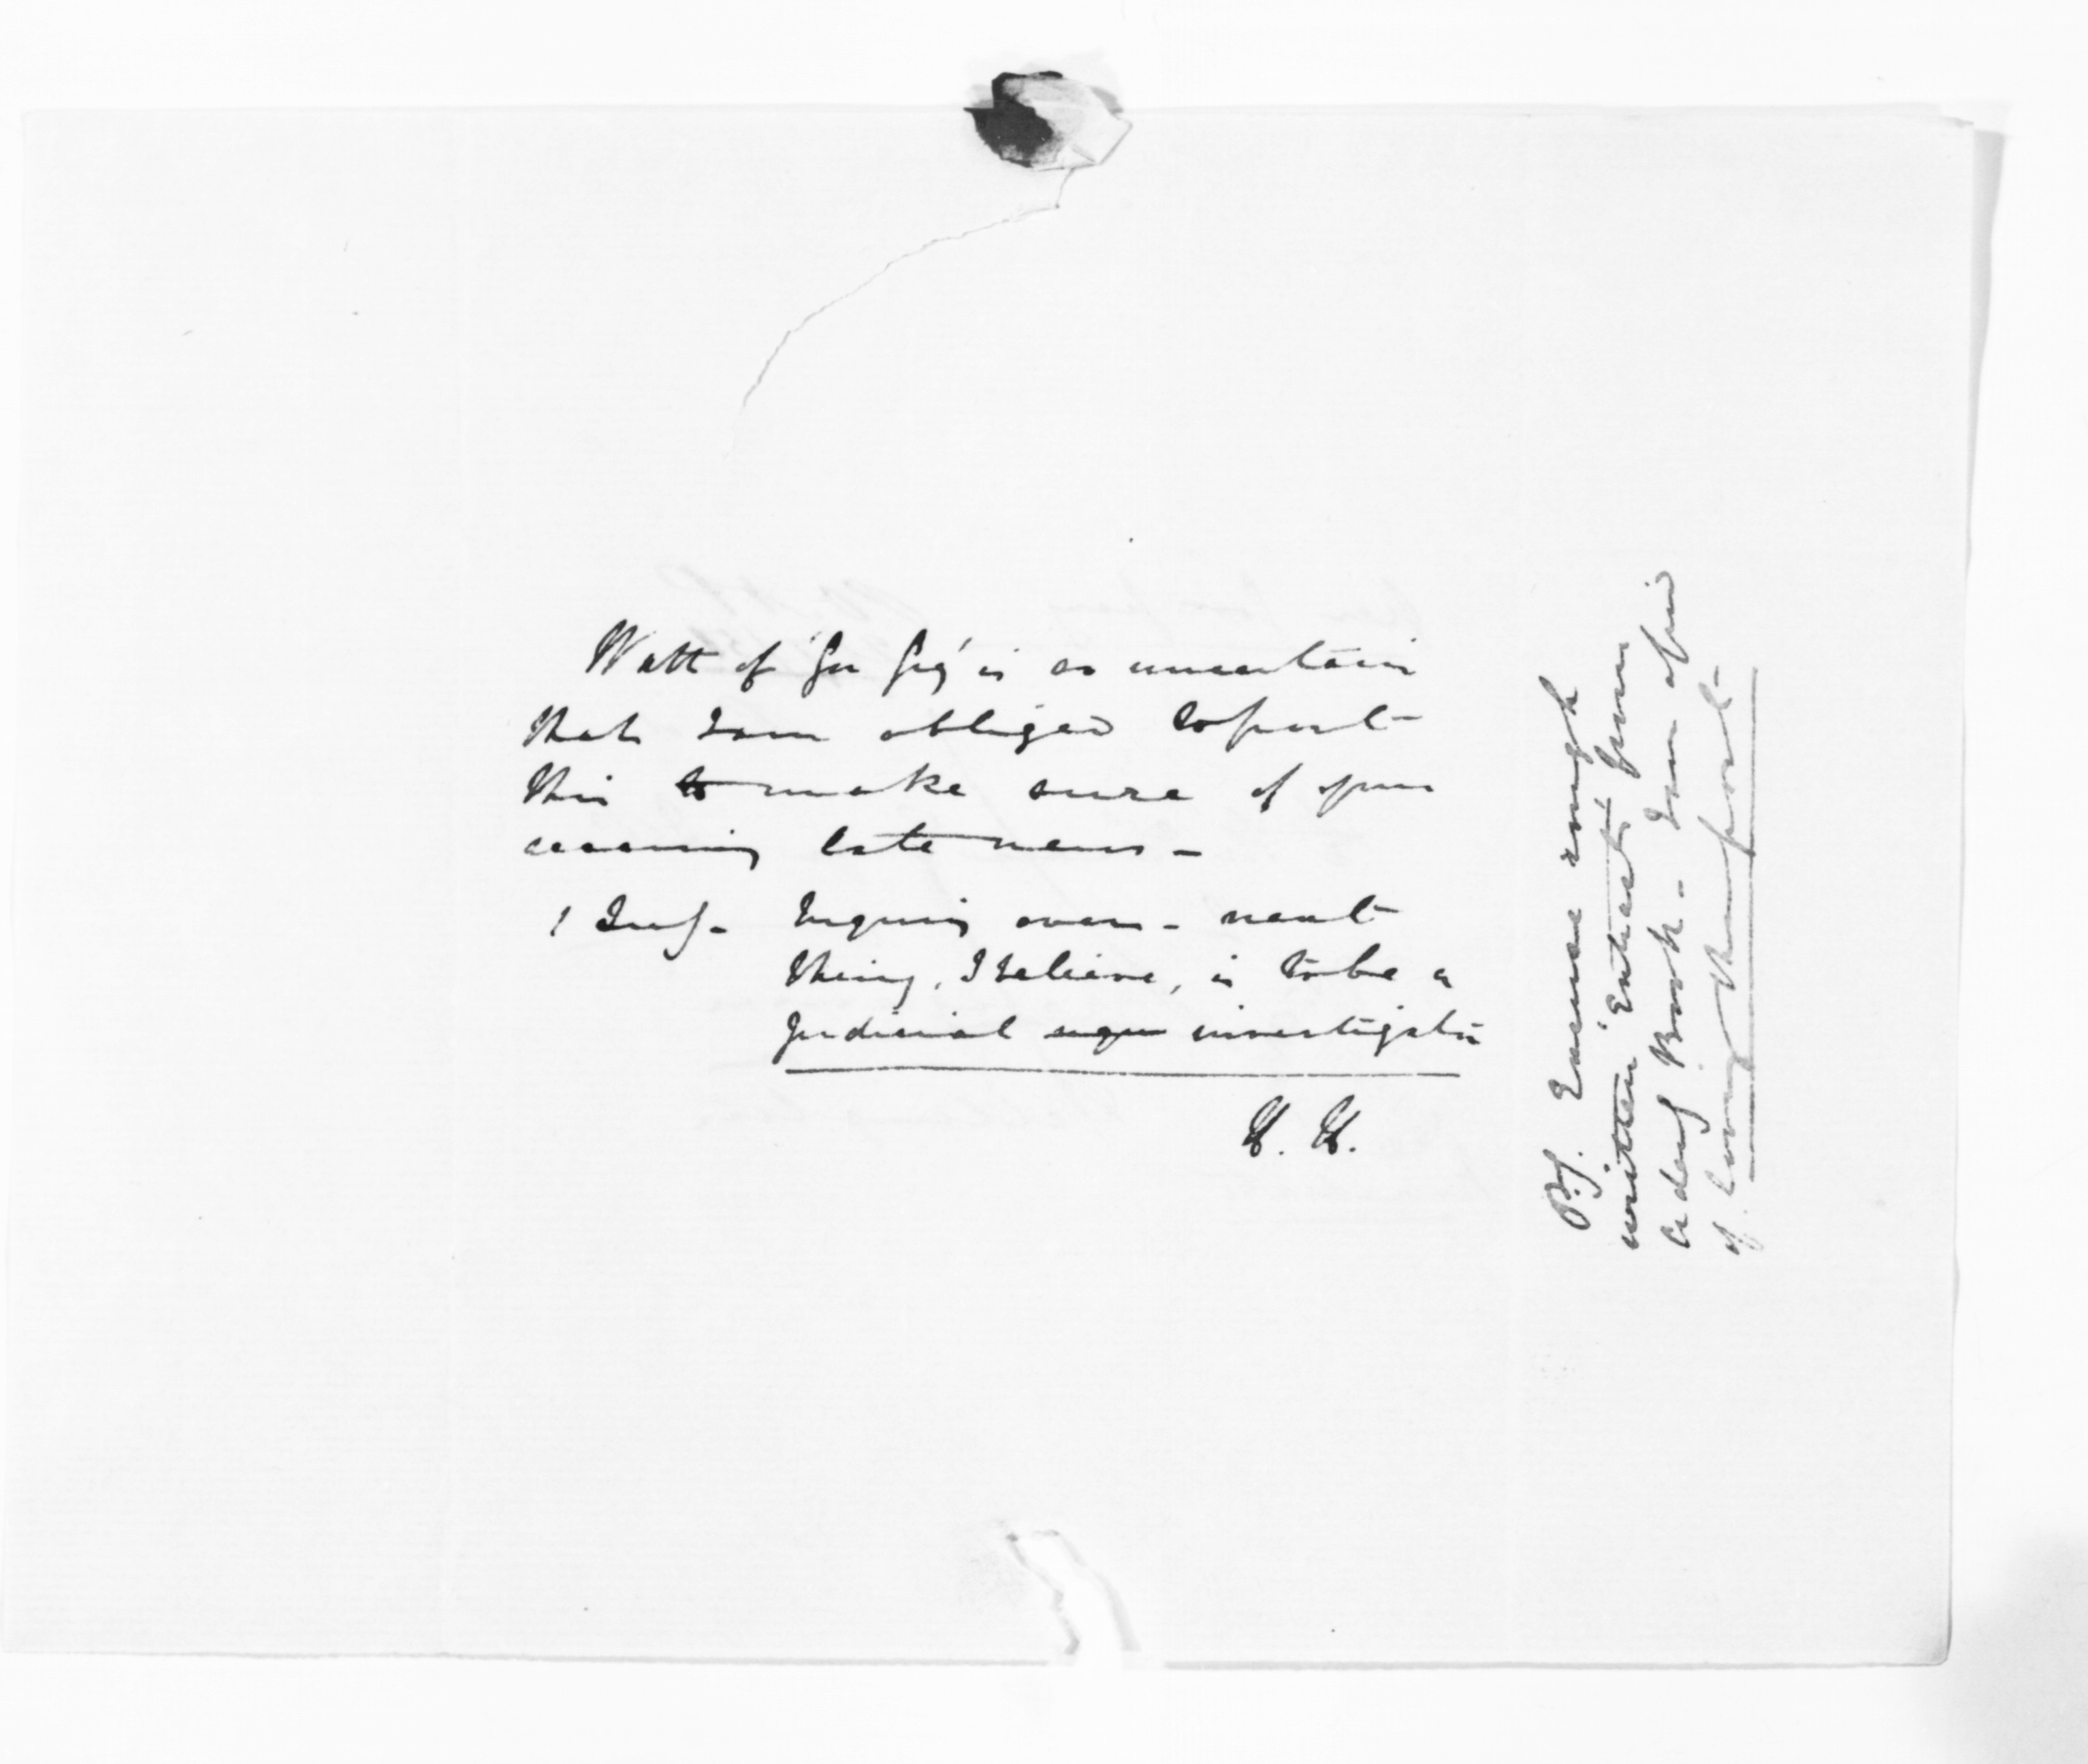 Watt of 'Gu Gu' is so uncertain
that I am obliged to post
this to make sure of your
receiving late news -
Inquiry over - next
thing, I believe, is to be a
Judicial inqu investigation
H. H.
P.S. Excuse rough
written 'Extracts' from
Order Book - I am afraid
of losing the post